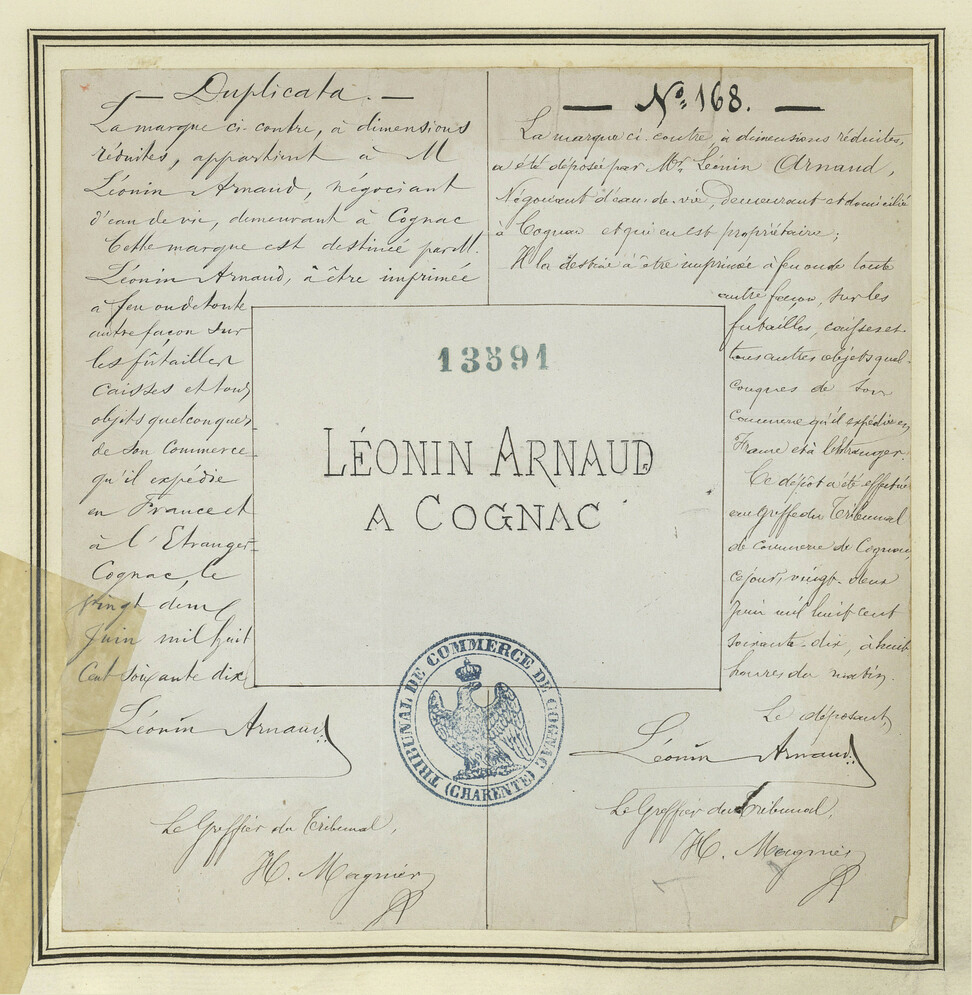 — Duplicata. —
La marque ci-contre, à dimensions
réduites, appartient à M
Léonin Arnaud, négociant
d'eau de vie, demeurant à Cognac
Cette marque est destinée par M.
Léonin Arnaud, à être imprimée
à feu ou de toute
autre façon sur
les fûtailles
caisses et tous
objets quelconques
de son Commerce
qu'il expédie
en France et
à l'Etranger
Cognac, le
vingt deux
Juin mil huit
Cent soixante dix
Léonin Arnaud
Le Greffier du Tribunal,
H. Magnier
— No. 168. —
La marque ci-contre à dimensions réduites,
a été déposée par Mr. Léonin Arnaud,
Négociant d'eau-de-vie, demeurant et domicilié
à Cognac et qui en est propriétaire;
Il la destine à être imprimée à feu ou de toute
autre façon, sur les
futailles, caisses et
tous autres objets quel
conques de son
Commerce qu'il expédie en
France et à l'étranger.
Ce dépôt a été effectué
au Greffe du Tribunal
de Commerce de Cognac,
ce jour, vingt-deux
Juin mil huit cent
soixante-dix, à huit
heures du matin.
Le déposant,
Léonin Arnaud
Le Greffier du Tribunal,
H. Magnier
13591
LÉONIN ARNAUD
A COGNAC
TRIBUNAL DE COMMERCE DE COGNAC
(CHARENTE)